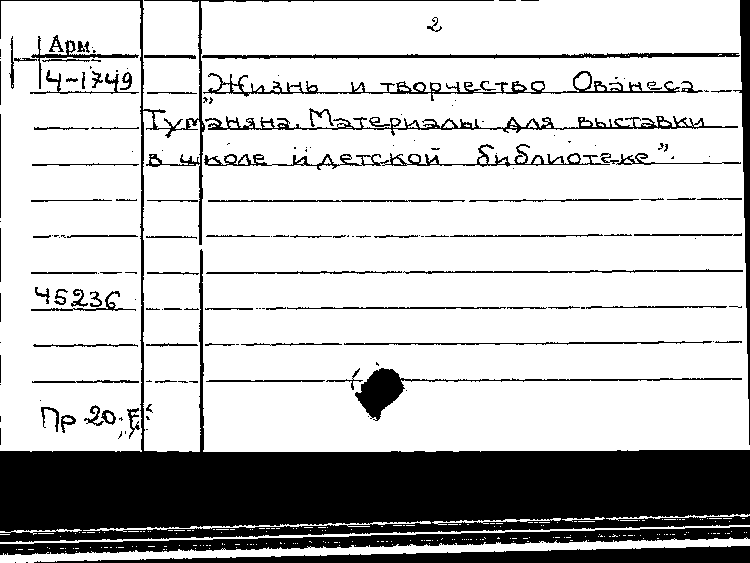 2
Арм.
4-1749
„Жизнь и творчество Ованеса
Туманяна. Материалы для выставки
в школе и детской библиотеке”.
45236
Пр 20.